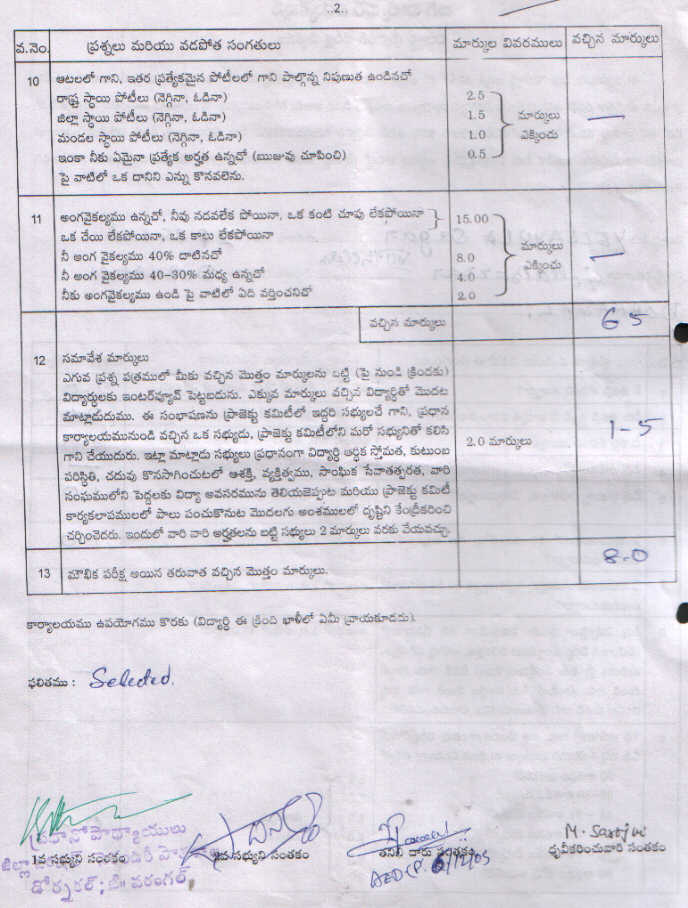 ..2..
వ.నెం. ప్రశ్నలు మరియు వడపోత సంగతులు మార్కుల వివరములు వచ్చిన మార్కులు
10 ఆటలలో గాని, ఇతర ప్రత్యేకమైన పోటీలలో గాని పాల్గొన్న నిపుణత ఉండినచో
రాష్ట్ర స్థాయి పోటీలు (నెగ్గినా, ఓడినా) 2.5
జిల్లా స్థాయి పోటీలు (నెగ్గినా, ఓడినా) 1.5 మార్కులు
మండల స్థాయి పోటీలు (నెగ్గినా, ఓడినా) 1.0 ఎక్కించు
ఇంకా నీకు ఏమైనా ప్రత్యేక అర్హత ఉన్నచో (ఋజువు చూపించి) 0.5
పై వాటిలో ఒక దానిని ఎన్ను కొనవలెను.
11 అంగవైకల్యము ఉన్నచో, నీవు నడవలేక పోయినా, ఒక కంటి చూపు లేకపోయినా 15.00
ఒక చేయి లేకపోయినా, ఒక కాలు లేకపోయినా
నీ అంగ వైకల్యము 40% దాటినచో 8.0 మార్కులు
నీ అంగ వైకల్యము 40-30% మధ్య ఉన్నచో 4.0 ఎక్కించు
నీకు అంగవైకల్యము ఉండి పై వాటిలో ఏది వర్తించనిచో 2.0
వచ్చిన మార్కులు 65
12 సమావేశ మార్కులు
ఎగువ ప్రశ్న పత్రములో మీకు వచ్చిన మొత్తం మార్కులను బట్టి (పై నుండి క్రిందకు)
విద్యార్థులకు ఇంటర్వ్యూవ్ పెట్టబడును. ఎక్కువ మార్కులు వచ్చిన విద్యార్థితో మొదట
మాట్లాడుదుము. ఈ సంభాషణను ప్రాజెక్టు కమిటీలో ఇద్దరి సభ్యులచే గాని, ప్రధాన
కార్యాలయమునుండి వచ్చిన ఒక సభ్యుడు, ప్రాజెక్టు కమిటీలోని మరో సభ్యునితో కలిసి
గాని చేయుదురు. ఇట్లా మాట్లాడు సభ్యులు ప్రధానంగా విద్యార్థి ఆర్థిక స్తోమత, కుటుంబ 2.0 మార్కులు 1-5
పరిస్థితి, చదువు కొనసాగించుటలో ఆశక్తి, వ్యక్తిత్వము, సాంఘిక సేవాతత్పరత, వారి
సంఘములోని పెద్దలకు విద్యా అవసరమును తెలియజెప్పుట మరియు ప్రాజెక్టు కమిటీ
కార్యకలాపములలో పాలు పంచుకొనుట మొదలగు అంశములలో దృష్టిని కేంద్రీకరించి
చర్చించెదరు. ఇందులో వారి వారి అర్హతలను బట్టి సభ్యులు 2 మార్కులు వరకు వేయవచ్చు.
13 మౌఖిక పరీక్ష అయిన తరువాత వచ్చిన మొత్తం మార్కులు. 8.0
కార్యాలయము ఉపయోగము కొరకు (విద్యార్థి ఈ క్రింది ఖాళీలో ఏమీ వ్రాయకూడదు).
ఫలితము : Selected.
ప్రధానోపాధ్యాయులు
1వ సభ్యుని సంతకం 2వ సభ్యుని సంతకం సంతకం ధృవీకరించువారి సంతకం
డోర్నకల్; జి॥ వరంగల్